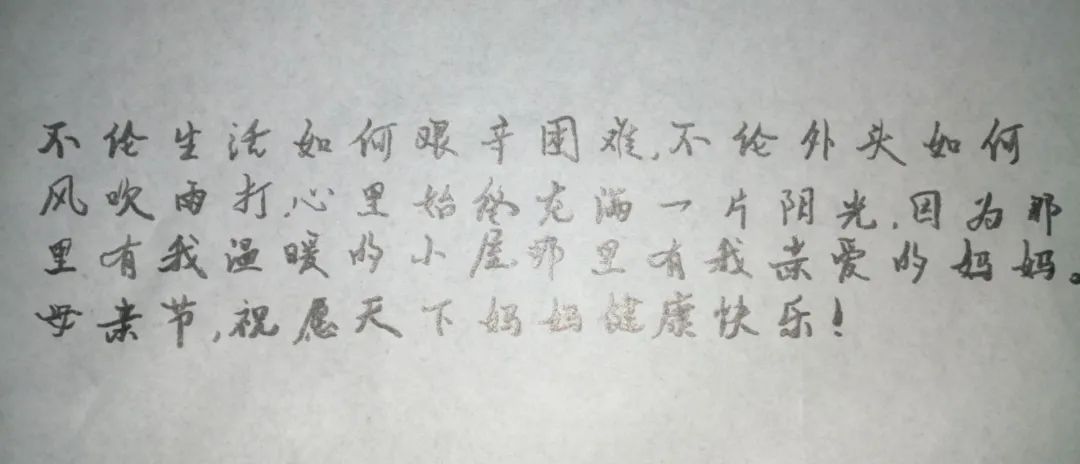 不伦生活如何艰辛困难,不伦外头如何
风吹雨打,心里始终充满一片阳光,因为那
里有我温暖的小屋那里有我亲爱的妈妈。
母亲节,祝愿天下妈妈健康快乐!